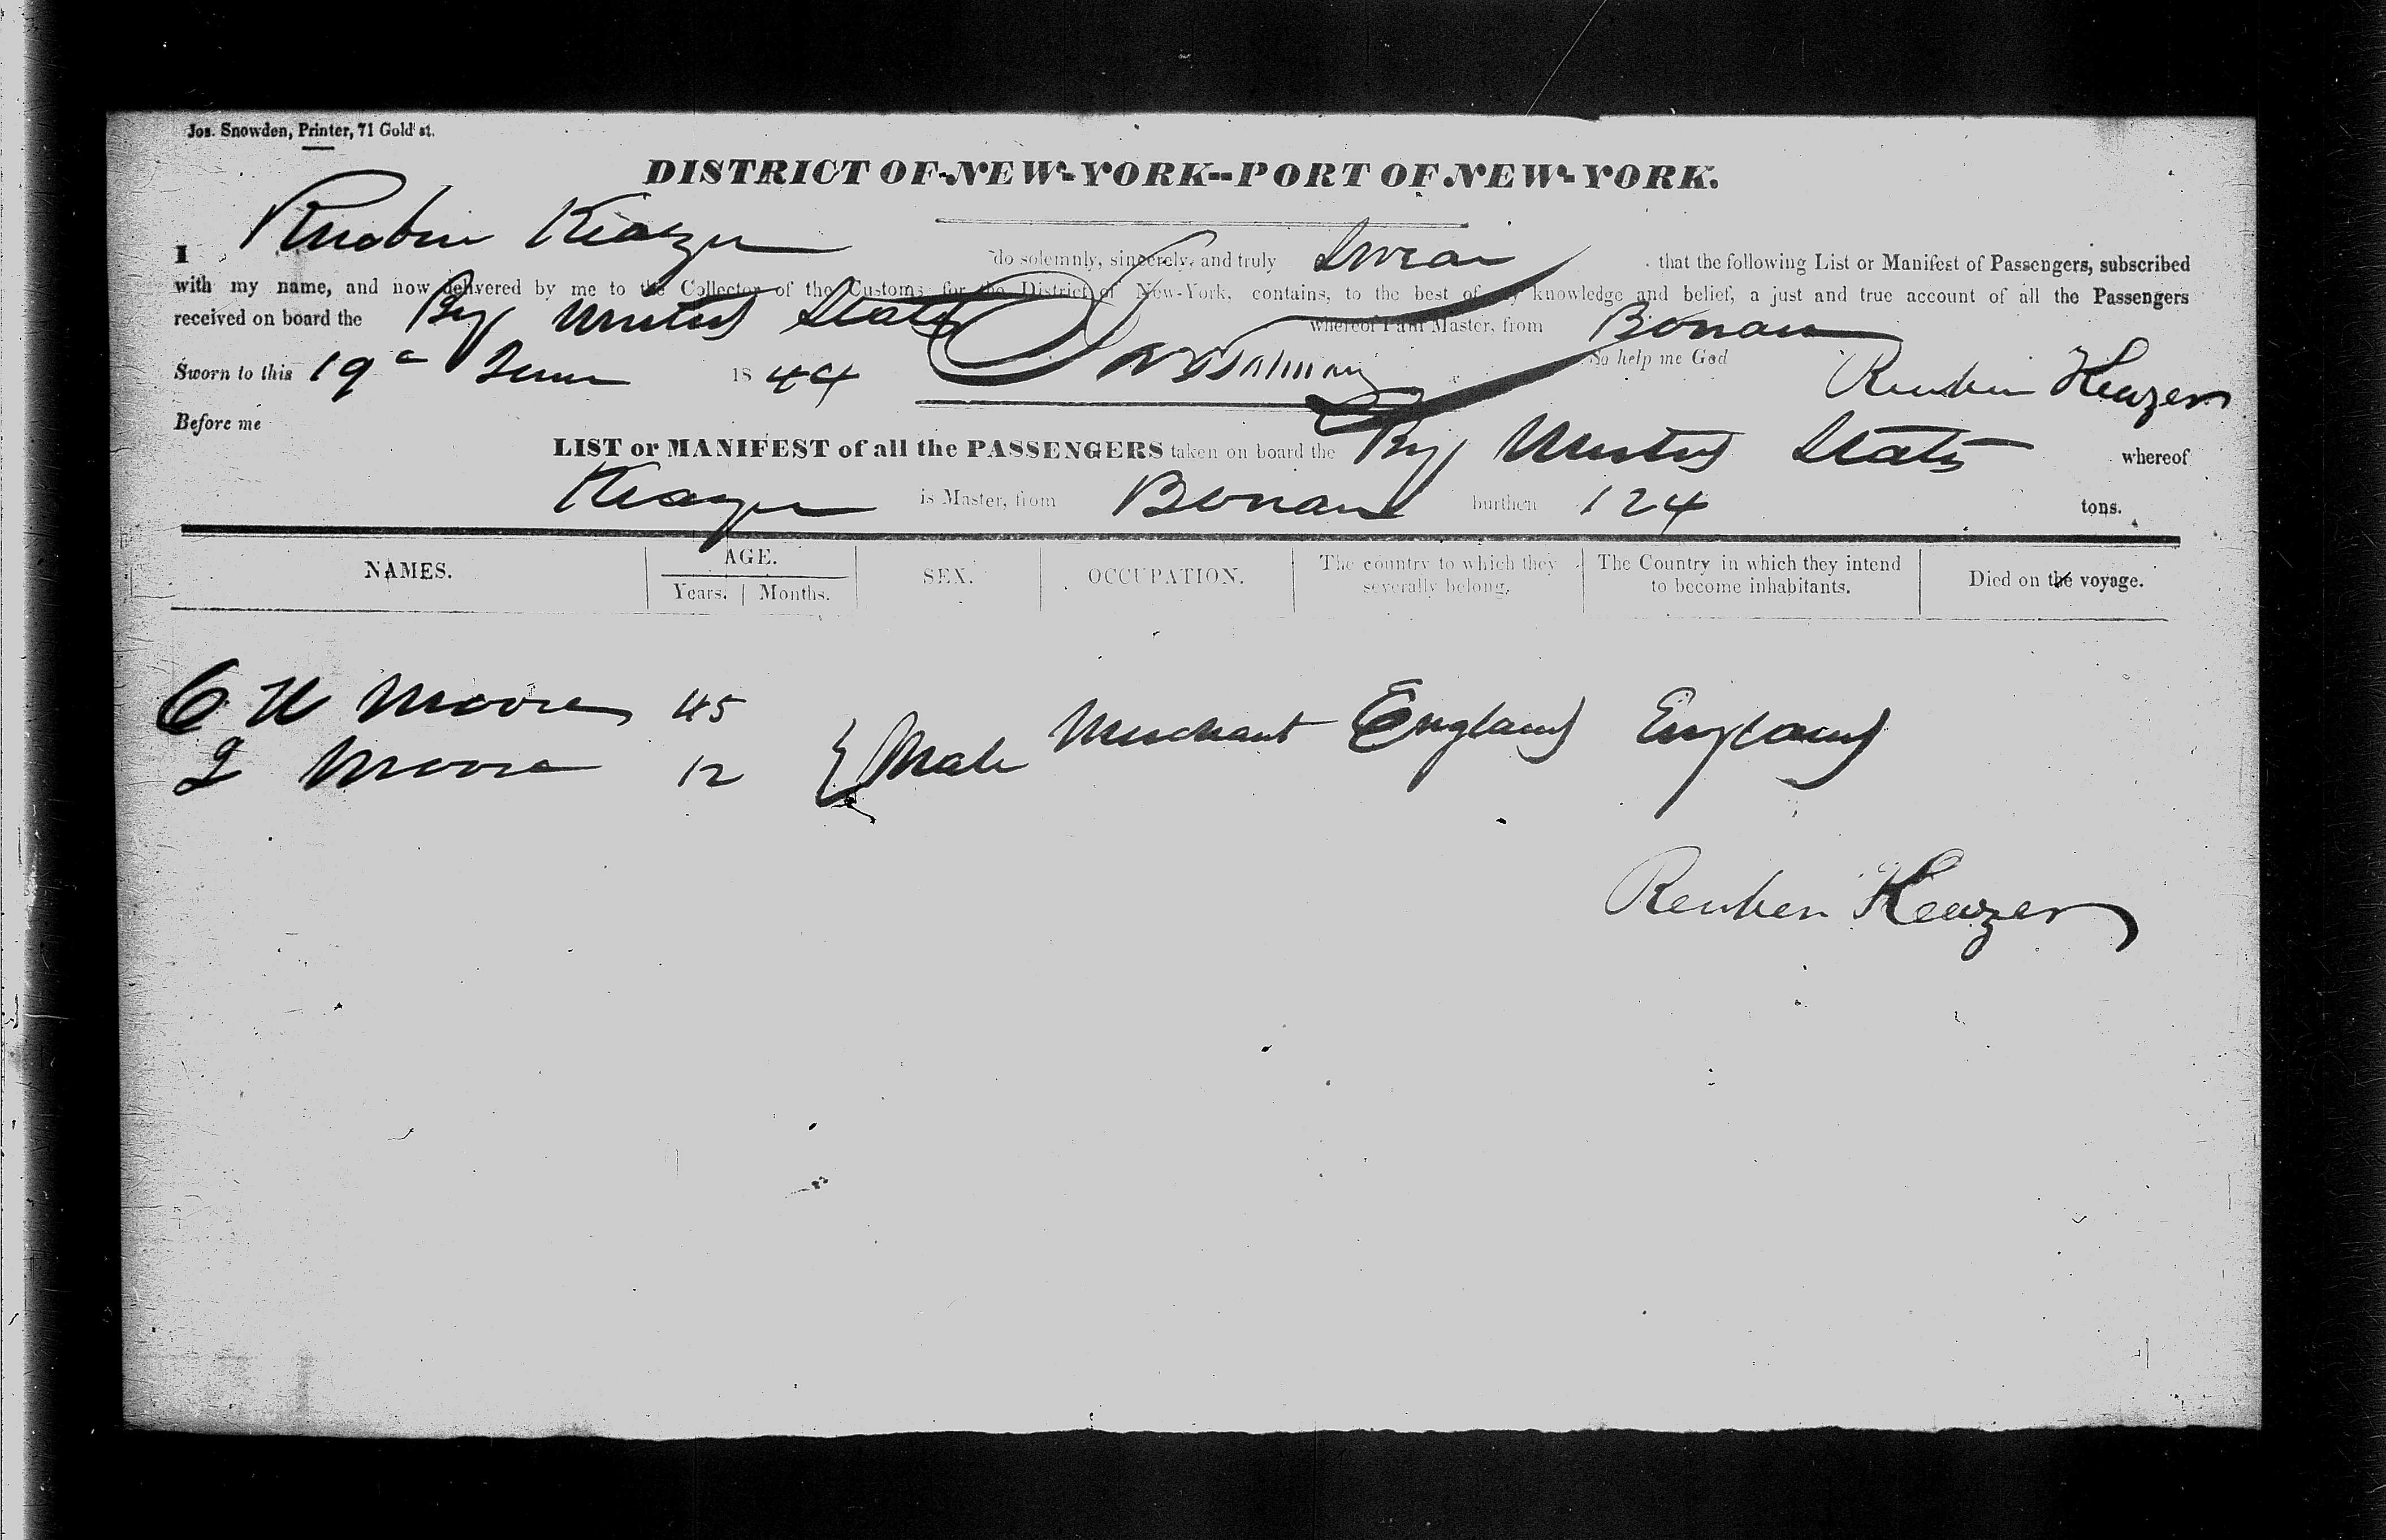 Jos. Snowden, Printer, 71 Gold st.
DISTRICT OF NEW-YORK--PORT OF NEW-YORK.
I Reuben Keazer do solemnly, sincerely, and truly Swear that the following List or Manifest of Passengers, subscribed
with my name, and now delivered by me to the Collector of the Customs for the District of New-York, contains, to the best of my knowledge and belief, a just and true account of all the Passengers
received on board the Brig United States whereof I am Master, from Bonair
So help me God
Sworn to this 19 June 1844 Reuben Keazer
Before me
LIST or MANIFEST of all the PASSENGERS taken on board the Brig United States whereof
Keazer is Master, from Bonair burthen 124 tons.
NAMES. AGE. SEX. OCCUPATION. The country to which they severally belong. The Country in which they intend to become inhabitants. Died on the voyage.
Years. Months.
C W Moore 45
J Moore 12 Male Merchant England England
Reuben Keazer